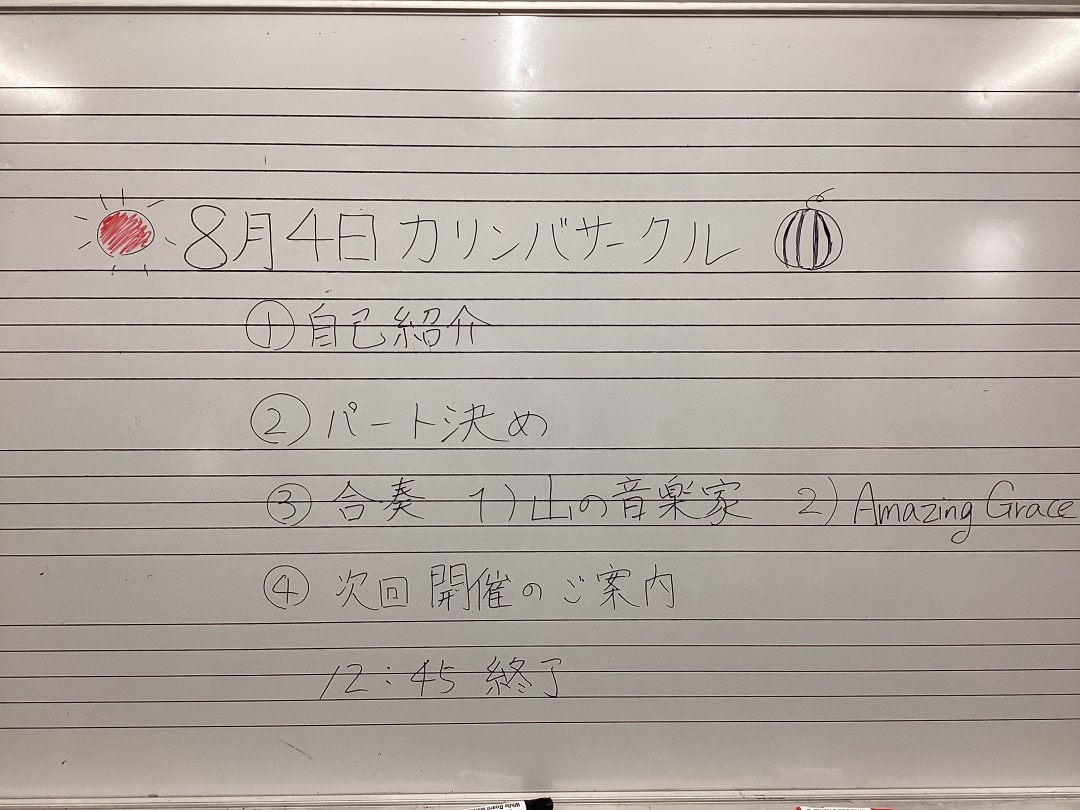 8月4日 カリンバサークル
① 自己紹介
② パート決め
③ 合奏 1)山の音楽家 2) Amazing Grace
④ 次回開催のご案内
12:45 終了